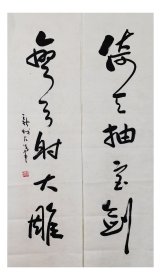 倚天抽宝剑
彎弓射大雕